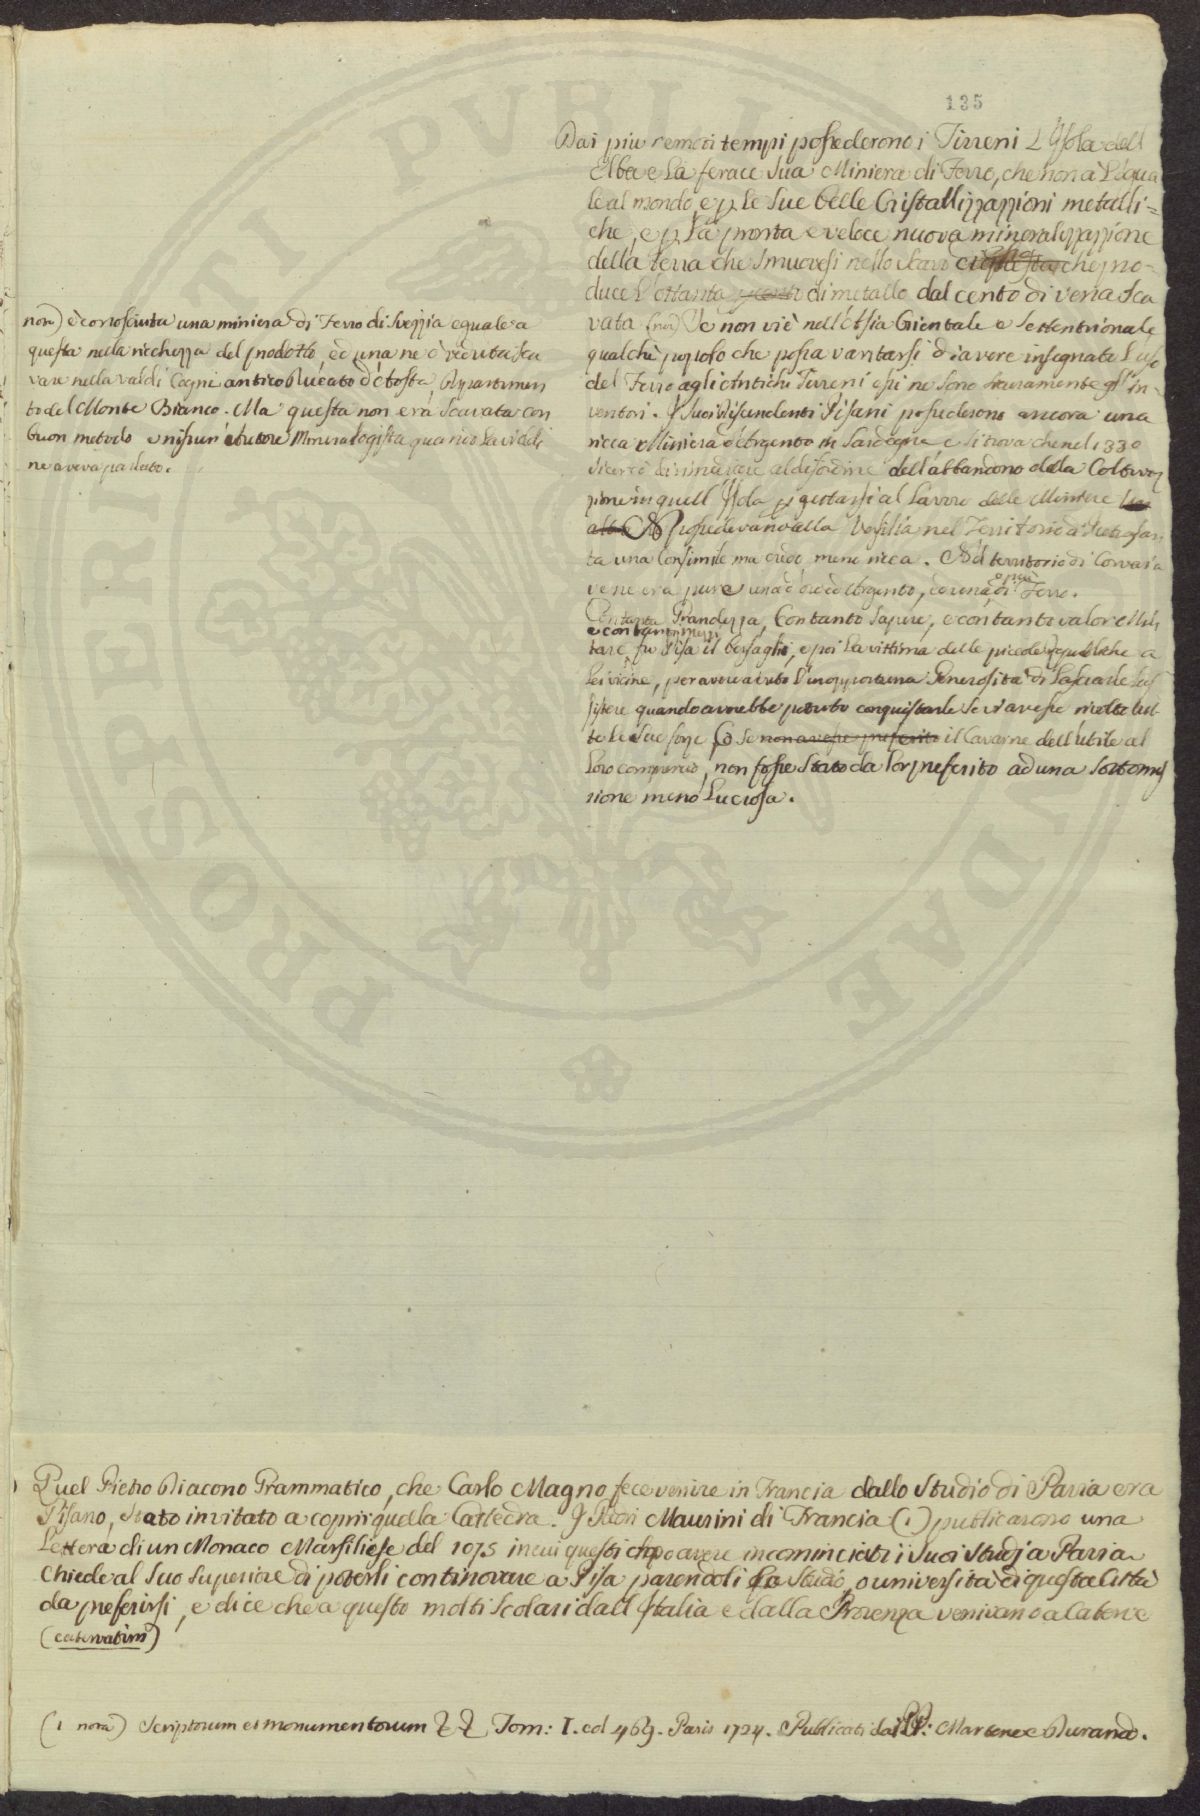 135
Dai piu remoti tempi possederono i Tirreni L'Isola dell
Elba e La ferace Sua Miniera di Ferro, che non à L'egua
le al mondo, e p. Le Sue belle Cristallizzazzioni metalli=
che, e p. La pronta e veloce nuova mineralizzazzione
della terra che Smuovesi nello Scavo che pro=
duce L'ottanta di metallo dal cento di vena Sca
vata (nota) Se non vi è nell'Asia Orientale e Settentrionale
qualche popolo che possa vantarsi di avere insegnato L'uso
del Ferro agli Antichi Tirreni essi ne Sono Sicuramente gl'in=
ventori. I Suoi discendenti Pisani possederono ancora una
ricca Miniera d'Argento in Sardegna e Si trova che nel 1330
Si cercò di rimediare al disordine dell'abbandono della Coltivaz
zione in quell'Isola p. gettarsi al Lavoro delle Miniere
Possedevano nella Versilia nel Territorio di Pietrasan
ta una Consimile ma credo meno ricca. Nel territorio di Corvaia
ve ne era pure una d'oro ed Argento, ed una di Ferro.
Con tanta Grandezza, Con tanto Sapere, e con tanto valor Mili
tare fu Pisa il bersaglio, e poi La vittima delle piccole Republiche a
Lei vicine, per avere avuto L'inopportuna Generosità di Lasciarle Sus
sistere quando avrebbe potuto conquistarle Se vi avesse rivolte tut
te Le Sue forze Se non avesse preferito il Cavarne dell'utile al
Loro comercio, non fosse Stato da Lor preferito ad una Sottomis
sione meno Lucrosa.
nota) è conosciuta una miniera di Ferro di Svezzia eguale a
questa nella ricchezza del prodotto, ed una ne ò veduta Sca
vare nella Val di Cogni antico Ducato d'Aosta Dipartimen
to del Monte Bianco. Ma questa non era Scavata con
buon metodo e nissun Autore Mineralogista quando La vidi
ne aveva parlato.
Quel Pietro Diacono Grammatico, che Carlo Magno fece venire in Francia dallo Studio di Pavia era
Pisano, Stato invitato a coprir quella Cattedra. I Padri Maurini di Francia (1) publicarono una
Lettera di un Monaco Marsiliese del 1075 in cui questi dopo avere incominciati i Suoi Studj a Pavia
Chiede al Suo Superiore di poterli continovare a Pisa parendoli Lo Studio, o università di questa Città
da preferirsi, e dice che a questo molti Scolari dall'Italia e dalla Provenza venivano a caterve
(catervatim)
(1 nota) Scriptorum et monumentorum Tom: I. col 469. Paris 1724. Publicati dai PP: Martene e Durand.